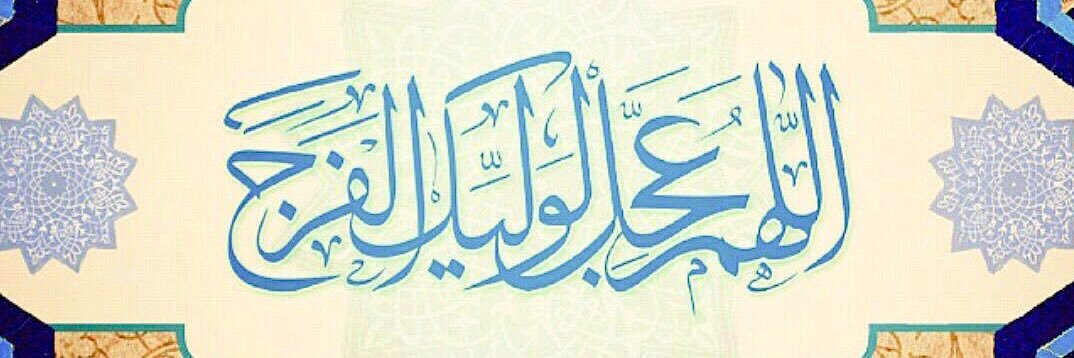 اللّهُمَّ عَجِّل لِوَلیِّکَ الفَرَجَ